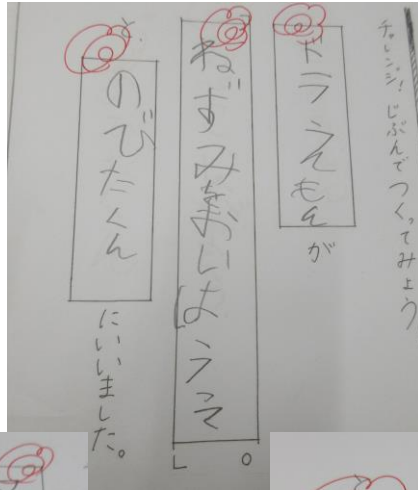 チャレンジ! じぶんでつくってみよう
ドラえもんが
ねずみ
と、
のびたくんにいいました。